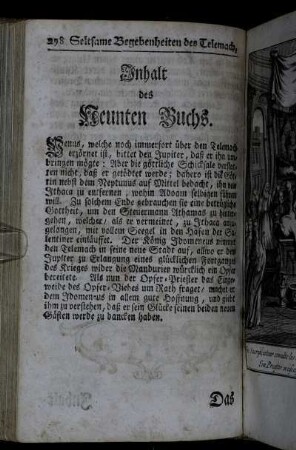 298 Seltsame Begebenheiten des Telemach,
Inhalt
des
Neunten Buchs.
Venus, welche noch immerfort über den Telemach
erzörnet ist, bittet den Jupiter, daß er ihn um-
bringen mögte: Aber die göttliche Schicksale verstat-
ten nicht, daß er getödtet werde; dahero ist die Göt-
tin nebst dem Neptunus auf Mittel bedacht, ihn von
Ithaca zu entfernen, wohin Adoam selbigen führen
will. Zu solchem Ende gebrauchen sie eine betrügliche
Gottheit, um den Steuermann Athamas zu hinter-
gehen, welcher, als er vermeinet, zu Ithaca ange-
langet, mit vollem Seegel in den Hafen der Sa-
lentiner einläuffet. Der König Idomeneus nimmt
den Telemach in seine neue Stadt auf, allwo er den
Jupiter zu Erlangung eines glücklichen Fortganges
des Krieges wider die Mandurier würcklich ein Opfer
bereitete. Als nun der Opfer-Priester das Einge-
weide des Opfer-Viehes um Rath fraget, machet er
dem Idomeneus in allem gute Hoffnung, und giebt
ihm zu verstehen, daß er sein Glücke seinen beiden neuen
Gästen werde zu dancken haben.
Das